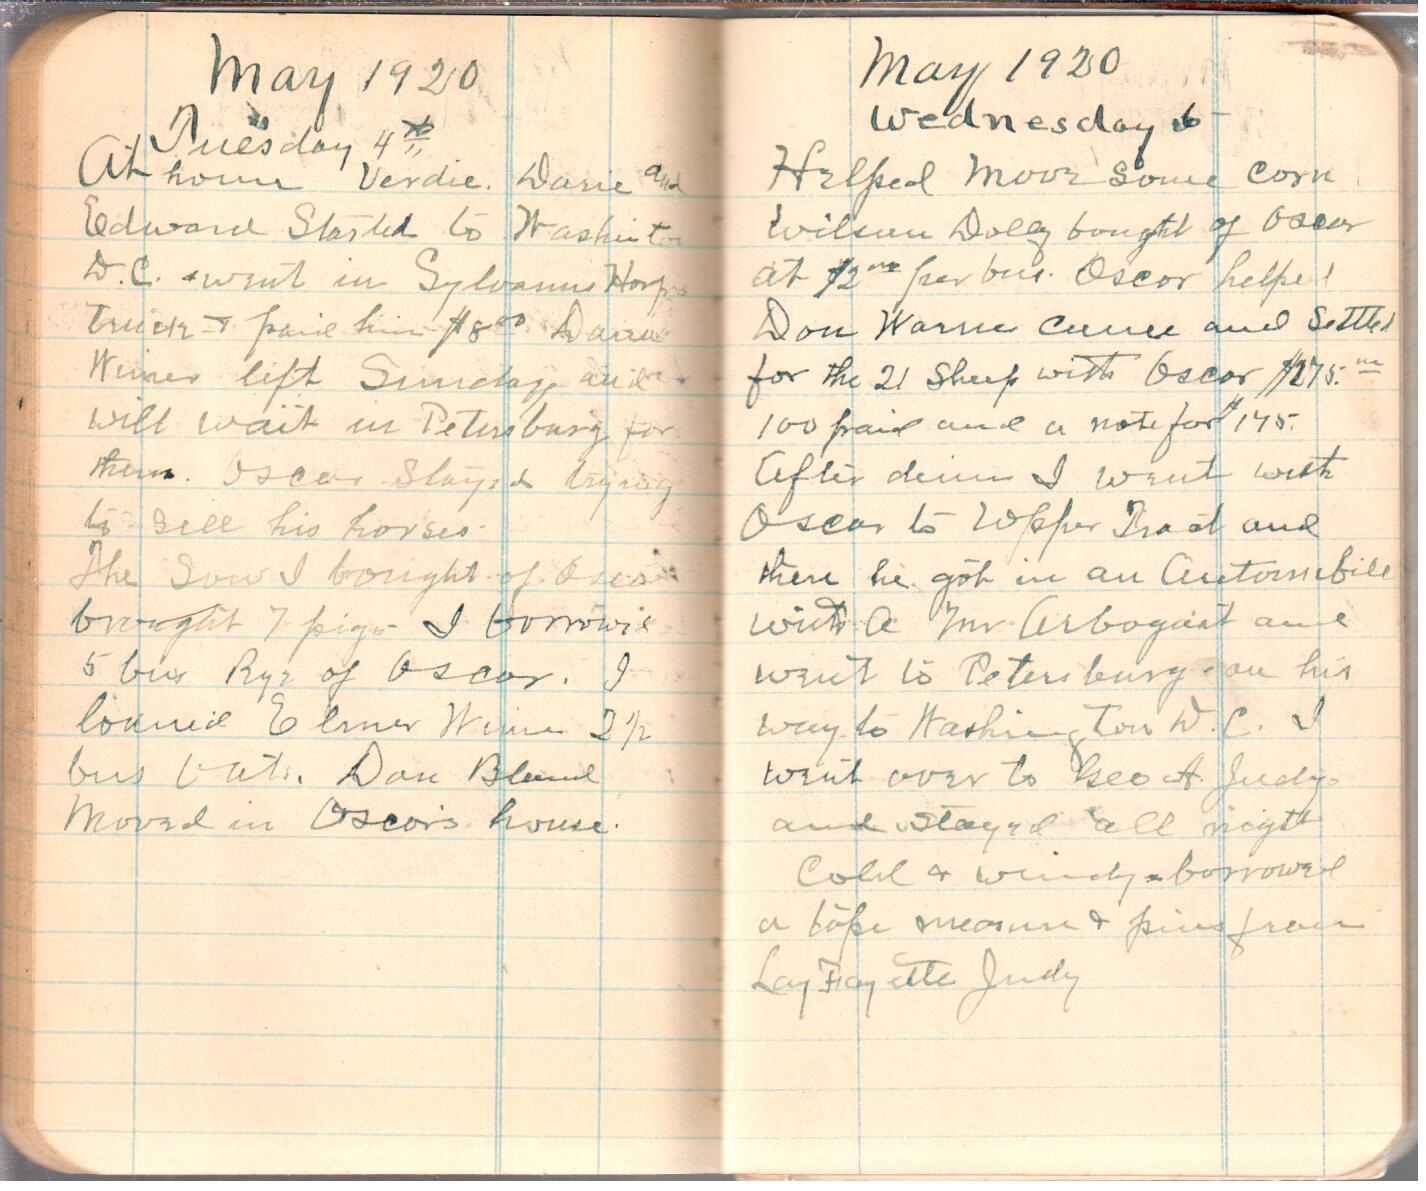 May 1920
Tuesday 4th
At home Verdie. Dasie and
Edward Started to Washinton
D.C. & went in Sylvanus Harp
truck & paid him $8.00
Wimer left Sunday and
will wait in Petersburg for
them. Oscar Stayed trying
to sell his horses.
The Sow I bought of Oscar
brought 7 pigs I borrowed
5 bus Rye of Oscar. I
loaned Elmer Wimer 2 1/2
bus Oats. Dan Bland
Moved in Oscors house.
May 1920
Wednesday 5
Helped Moove some corn
Wilson Dolly bought of Oscar
at $2.00 per bus. Oscor helped
Don Warner came and Settled
for the 21 Sheep with Oscar $275.00
100 paid and a note for $175.
After dinner I went with
Oscar to Upper Tract and
then he got in an Automobile
with a Mr. Arbogast and
went to Petersburg on his
way to Washington D.C. I
went over to Geo A. Judy
and stayed all night
Cold & windy - borrowed
a tape measure & pins from
LayFayette Judy